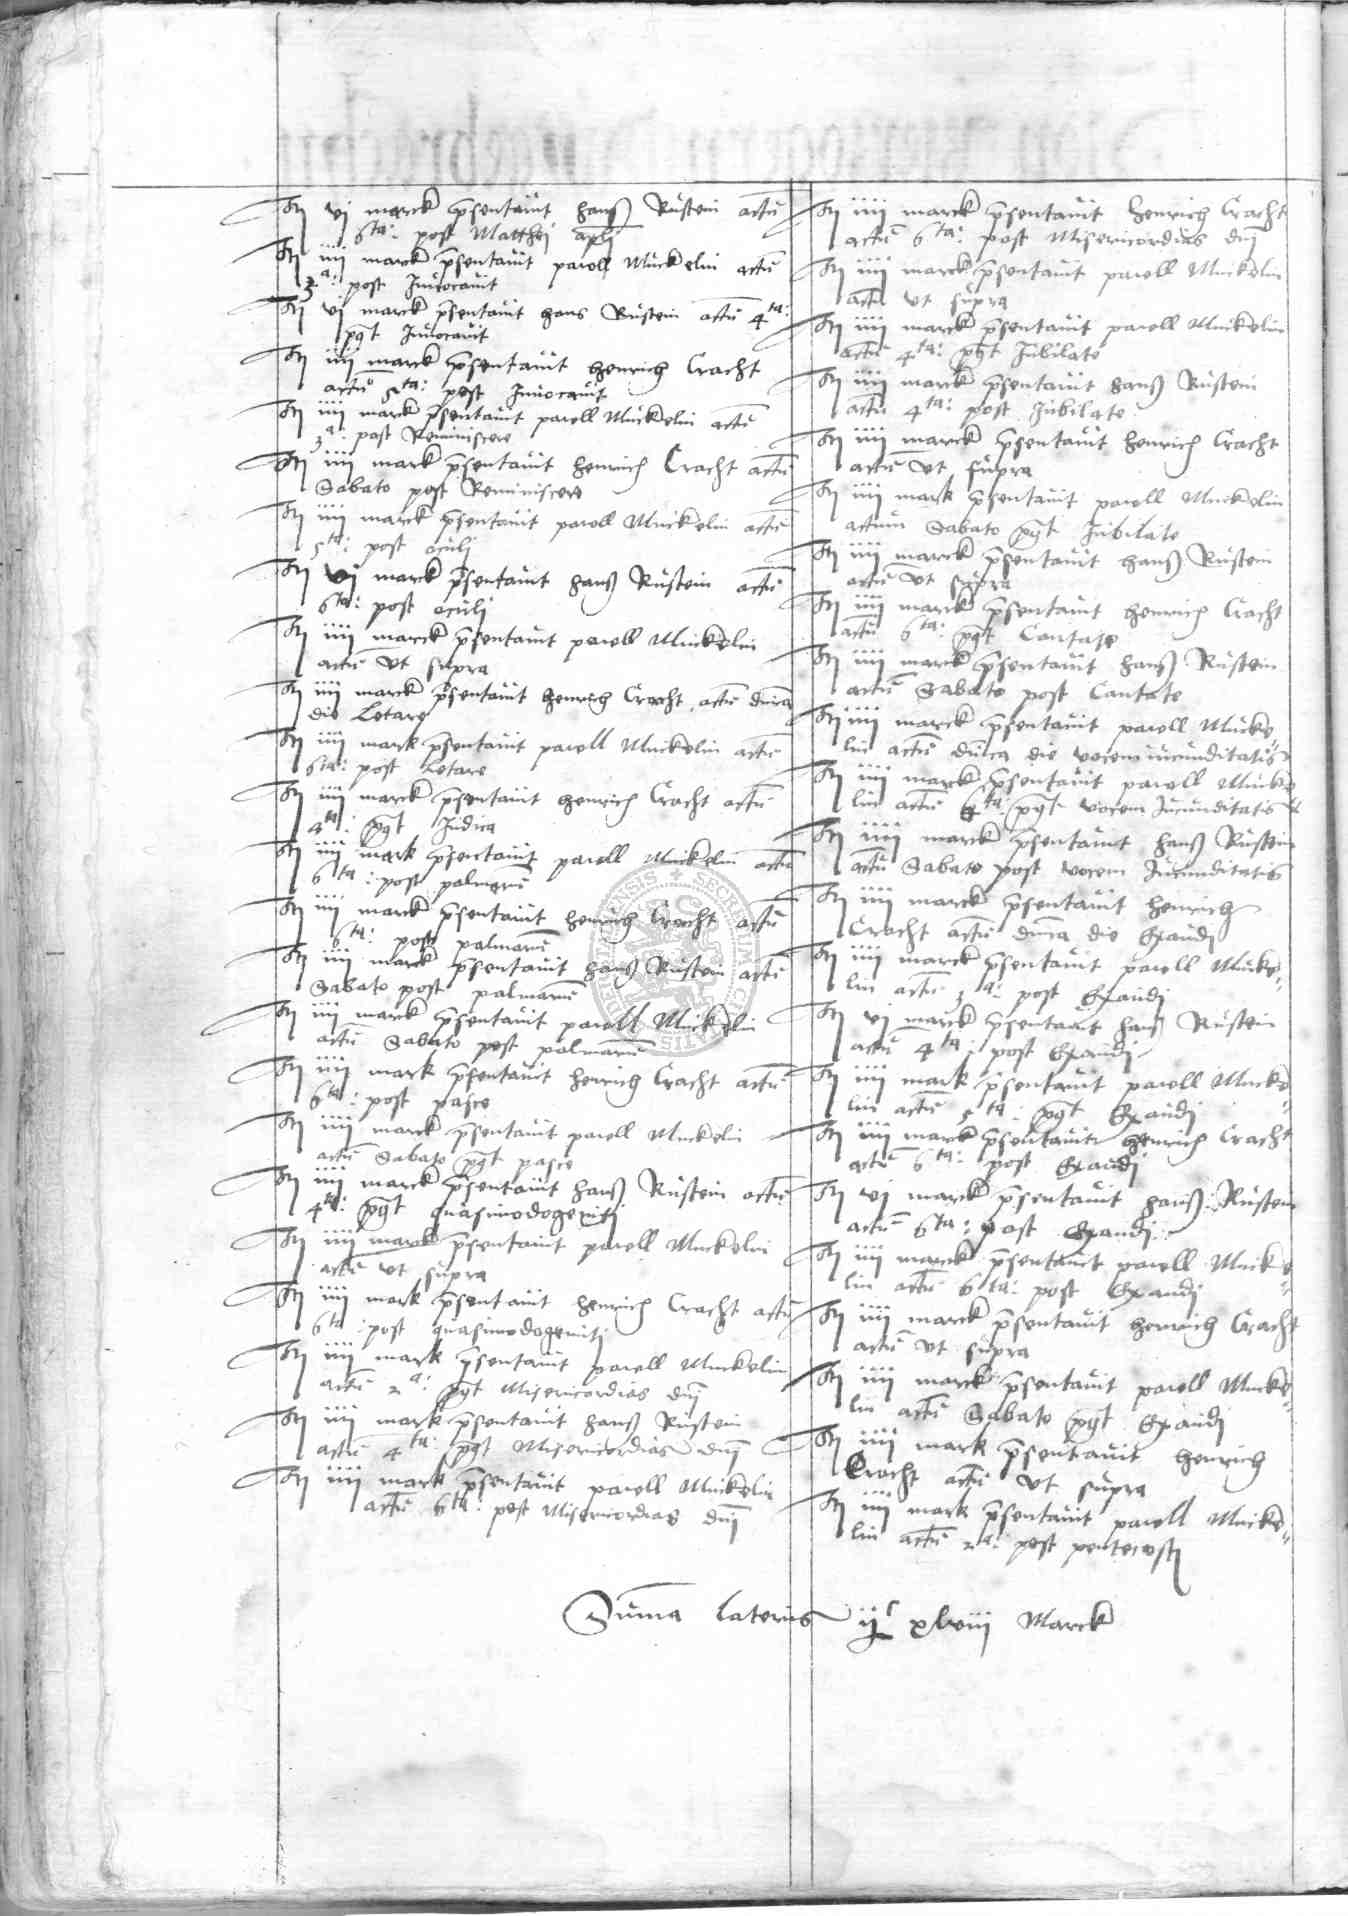 Itꝫ vj marck p̄sentauit hanß Rustein actū
6ta: post Matthei apli
Itꝫ iiij marck p̄sentauit pawll Muckelin actū
3a: post Inuocauit
Itꝫ vj marck p̄sentauit hans Rustein actū 4ta:
post Inuocauit
Itꝫ iiij marck p̄sentauit henrich Cracht
actū 5ta: post Inuocauit
Itꝫ iiij marck p̄sentauit pawll Muckelin actū
3a: post Reminiscere
Itꝫ iiij mark p̄sentauit henrich Cracht actū
Sabato post Reminiscere
Itꝫ iiij marck p̄sentauit pawll Muckelin actū
5ta: post oculj
Itꝫ vj marck p̄sentauit hanß Rustein actū
6ta: post oculj
Itꝫ iiij marck p̄sentauit pawll Muckelin
actū vt supra
Itꝫ iiij marck p̄sentauit henrich Cracht actū dnica
die Letare
Itꝫ iiij mark p̄sentauit pawll Muckelin actū
6ta: post Letare
Itꝫ iiij marck p̄sentauit henrich Cracht actū
4ta: post Judica
Itꝫ iiij mark p̄sentauit pawll Muckelin actū
6ta: post palmarū
Itꝫ iiij marck p̄sentauit henrich Cracht actū
6ta: post palmarū
Itꝫ iiij marck p̄sentauit hanß Rustein actū
Sabato post palmarū
Itꝫ iiij marck p̄sentauit pawll Muckelin
actū Sabato post palmarū
Itꝫ iiij mark p̄sentauit henrich Cracht actū
6ta: post pasce
Itꝫ iiij marck p̄sentauit pawll Muckelin
actū Sabato post pasce
Itꝫ iiij marck p̄sentauit hanß Rustein actū
4ta: post quasimodogenitj
Itꝫ iiij marck p̄sentauit pawll Muckelin
actū vt supra
Itꝫ iiij mark p̄sentauit henrich Cracht actū
6ta: post quasimodogenitj
Itꝫ iiij mark p̄sentauit pawll Muckelin
actū 2a: post Misericordias dnj
Itꝫ iiij mark p̄sentauit hanß Rustein
actū 4ta: post Misericordias dnj
Itꝫ iiij mark p̄sentauit pawll Muckelin
actū 6ta: post Misericordias dnj
Itꝫ iiij marck p̄sentauit henrich Cracht
actū 6ta: post Misericordias dnj
Itꝫ iiij marck p̄sentauit pawll Muckelin
actū vt supra
Itꝫ iiij marck p̄sentauit pawll Muckelin
actū 4ta: post Jubilate
Itꝫ iiij marck p̄sentauit hanß Rustein
actū 4ta: post Jubilate
Itꝫ iiij marck p̄sentauit henrich Cracht
actū vt supra
Itꝫ iiij mark p̄sentauit pawll Muckelin
actum Sabato post Jubilate
Itꝫ iiij marck p̄sentauit hanß Rustein
actū vt supra
Itꝫ iiij marck p̄sentauit henrich Cracht
actū 6ta: post Cantate
Itꝫ iiij marck p̄sentauit hanß Rustein
actū Sabato post Cantate
Itꝫ iiij marck p̄sentauit pawll Mucke„
lin actū dnica die vocem iucunditatis
Itꝫ iiij marck p̄sentauit pawll Mucke
lin actū 4ta: post vocem Jucunditatis
Itꝫ iiij marck p̄sentauit hanß Rustein
actū Sabato post vocem Jucunditatis
Itꝫ iiij marck p̄sentauit henrich
Cracht actū dnica die Exaudj
Itꝫ iiij marck p̄sentauit pawll Mucke„
lin actū 3a: post Exaudj
Itꝫ vj marck p̄sentauit hanß Rustein
actū 4ta: post Exaudj
Itꝫ iiij mark p̄sentauit pawll Mucke„
lin actū 5ta: post Exaudj
Itꝫ iiij marck p̄sentauit henrich Cracht
actū 6ta: post Exaudj
Itꝫ vj marck p̄sentauit hanß Rustein
actū 6ta: post Exaudj
Itꝫ iiij marck p̄sentauit pawll Mucke„
lin actū 6ta: post Exaudj
Itꝫ iiij marck p̄sentauit henrich Cracht
actū vt supra
Itꝫ iiij marck p̄sentauit pawll Mucke„
lin actū Sabato post Exaudj
Itꝫ iiij mark p̄sentauit henrich
Cracht actū vt supra
Itꝫ iiij mark p̄sentauit pawll Mucke„
lin actū 2a: post pentecostj
Sum̄a Lateris ijc xlviij Marck